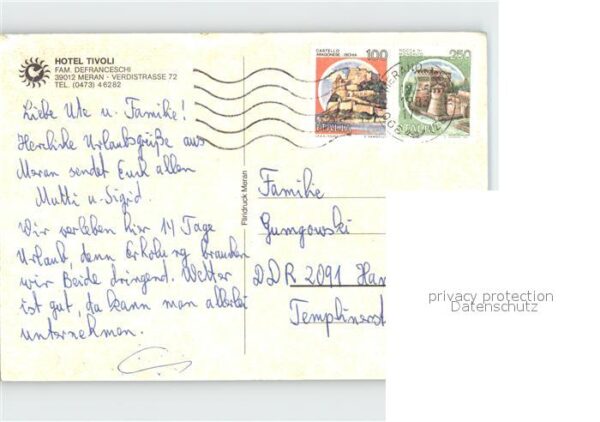 HOTEL TIVOLI
FAM. DEFRANCESCHI
39012 MERAN - VERDISTRASSE 72
TEL. (0473) 46282
CASTELLO
ARAGONESE - ISCHIA
100
ITALIA
ROCCA DI
250
ITALIA
Liebe Ute u. Familie!
Herzliche Urlaubsgrüße aus
Meran sendet Euch allen
Mutti u. Sigrid.
Wir verleben hier 14 Tage
Urlaub, denn Erholung brauchen
wir Beide dringend. Wetter
ist gut, da kann man allerlei
unternehmen.
Färldruck Meran
Familie
Gumgowski
DDR 2091 Ham
Templinerst
privacy protection
Datenschutz